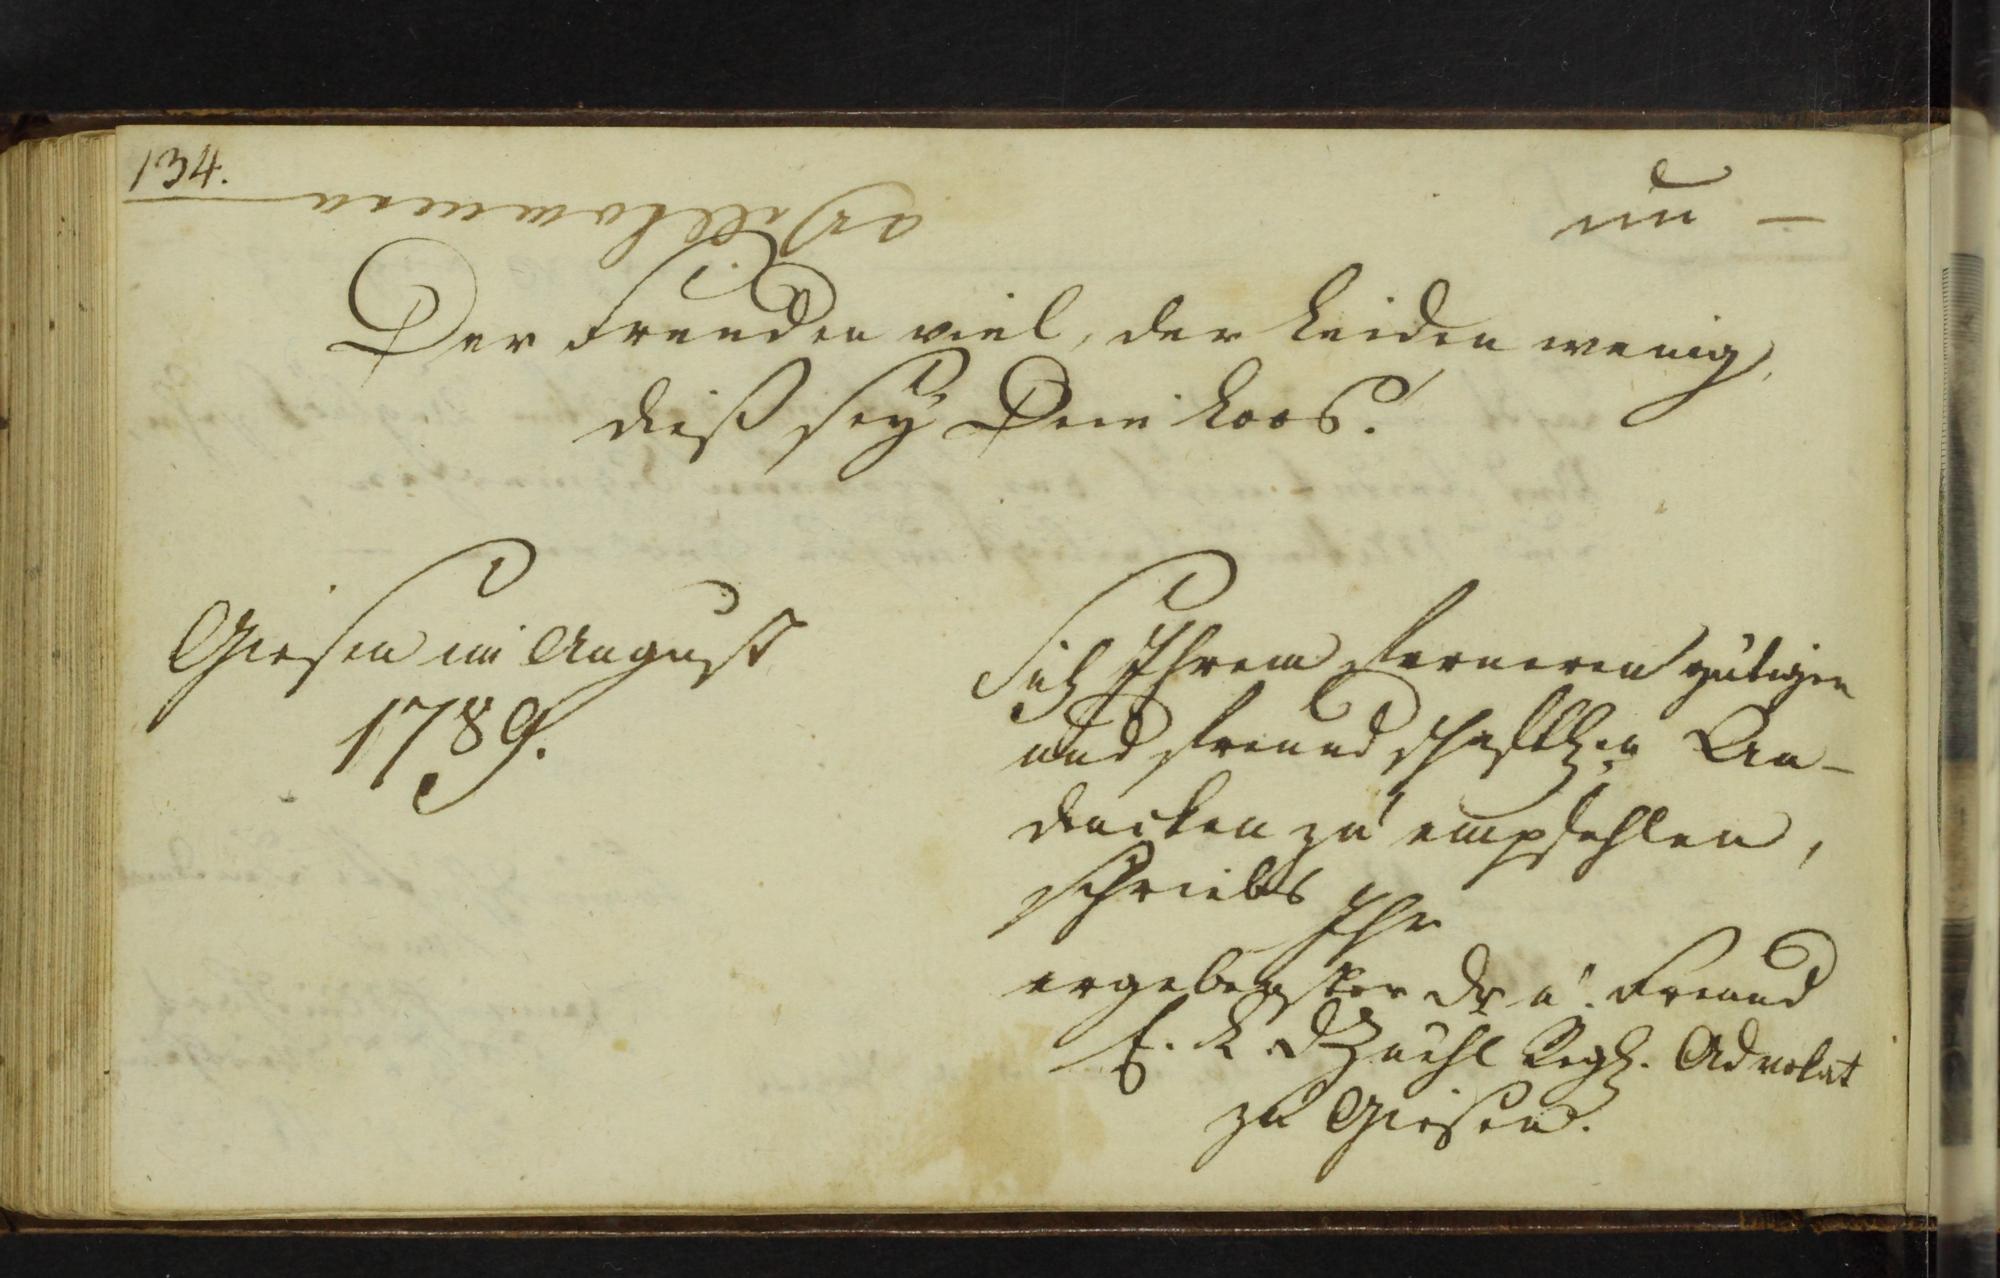 134.
Der Freuden viel, der Leiden wenig,
dieß sey Dein Loos!
Giesen im August
1789.
Sich Ihrem ferneren gütigen
und freundschaftlichen An-
dencken zu empfehlen,
schriebs Ihr
ergebenster Dr u. Freund
Regs. Advokat
zu Giesen.